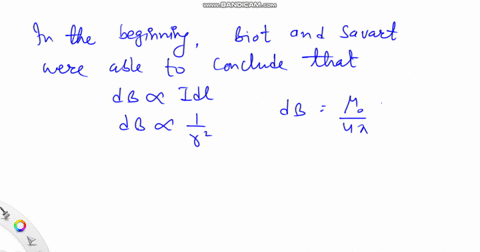 www.BANDICAM.com
In the beginning, Biot and Savart
were able to conclude that
dB ∝ Idl
dB ∝ 1/r² dB = μ₀/4π